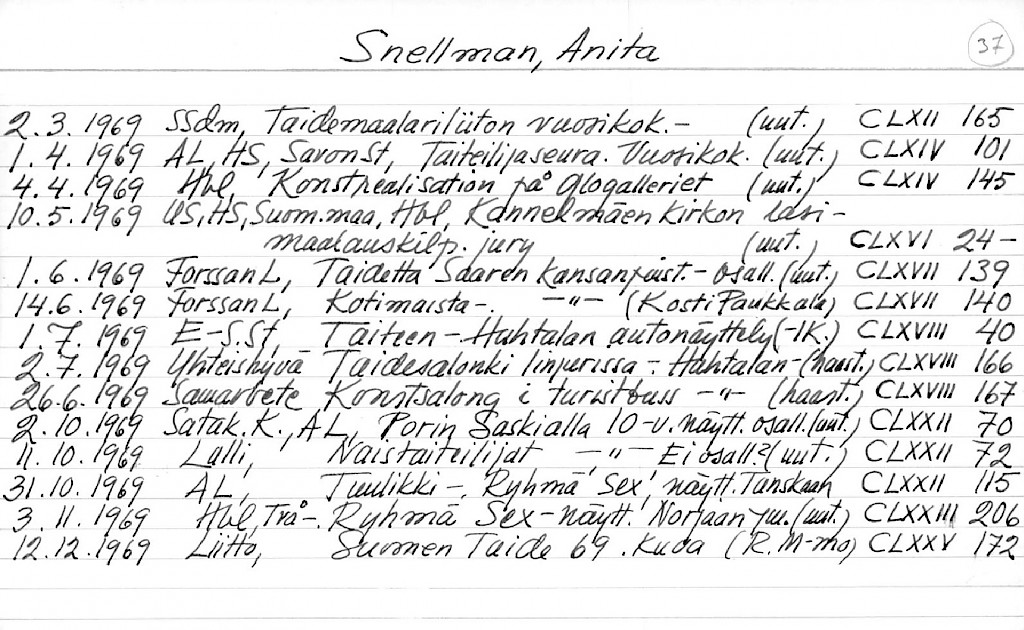 Snellman, Anita 37
2.3.1969 SSdm, Taidemaalariliiton vuosikok.- (uut.) CLXII 165
1.4.1969 AL, HS, SavonSt, Taiteilijaseura. Vuosikok. (uut.) CLXIV 101
4.4.1969 Hbl, Konstrealisation på Glogalleriet (uut.) CLXIV 145
10.5.1969 US, HS, Suom.maa, Hbl, Kannelmäen kirkon lasi-
maalauskilp. jury (uut.) CLXVI 24-
1.6.1969 ForssanL, Taidetta Saaren kansanpuist.- osall. (uut.) CLXVII 139
14.6.1969 ForssanL, Kotimaista-. -"- (Kosti Paukkala) CLXVII 140
1.7.1969 E-S.St, Taiteen - Huhtalan autonäyttely (-IK.) CLXVIII 40
2.7.1969 Yhteishyvä Taidesalonki linjurissa - Huhtalan - (haast.) CLXVIII 166
26.6.1969 Samarbete Konstsalong i turistbuss -"- (haast.) CLXVIII 167
2.10.1969 Satak.K., AL, Porin Saskialla 10-v. näytt. osall. (uut.) CLXXII 70
11.10.1969 Lalli, Naistaiteilijat -"- Ei osall? (uut.) CLXXII 72
31.10.1969 AL, Tuulikki-. Ryhmä 'Sex', näytt. Tanskaan CLXXII 115
3.11.1969 Hbl, Trå-. Ryhmä Sex-näytt. Norjaan ym. (uut.) CLXXIII 206
12.12.1969 Liitto, Suomen Taide 69. Kuva (R.M-mo) CLXXV 172